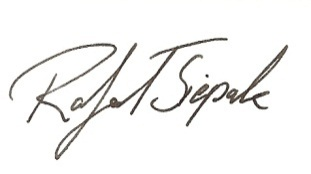 Rafał Siepak